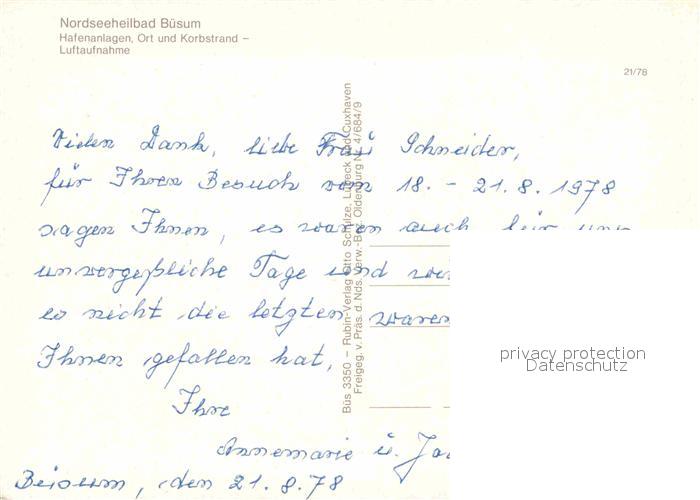 Nordseeheilbad Büsum
Hafenanlagen, Ort und Korbstrand –
Luftaufnahme
21/78
Vielen Dank, liebe Frau Schneider,
für Ihren Besuch vom 18. - 21. 8. 1978
sagen Ihnen, es waren auch für uns
unvergeßliche Tage und
es nicht die letzten waren
Ihnen gefallen hat,
Ihre
Annemarie u.
Beisum, den 21. 8. 78
Büs 3350 – Rubin-Verlag Otto Schulze, Lübeck und Cuxhaven
Freigeg. v. Präs. d. Nds. Verw.-Bez. Oldenburg Nr. 4/684/9
privacy protection
Datenschutz